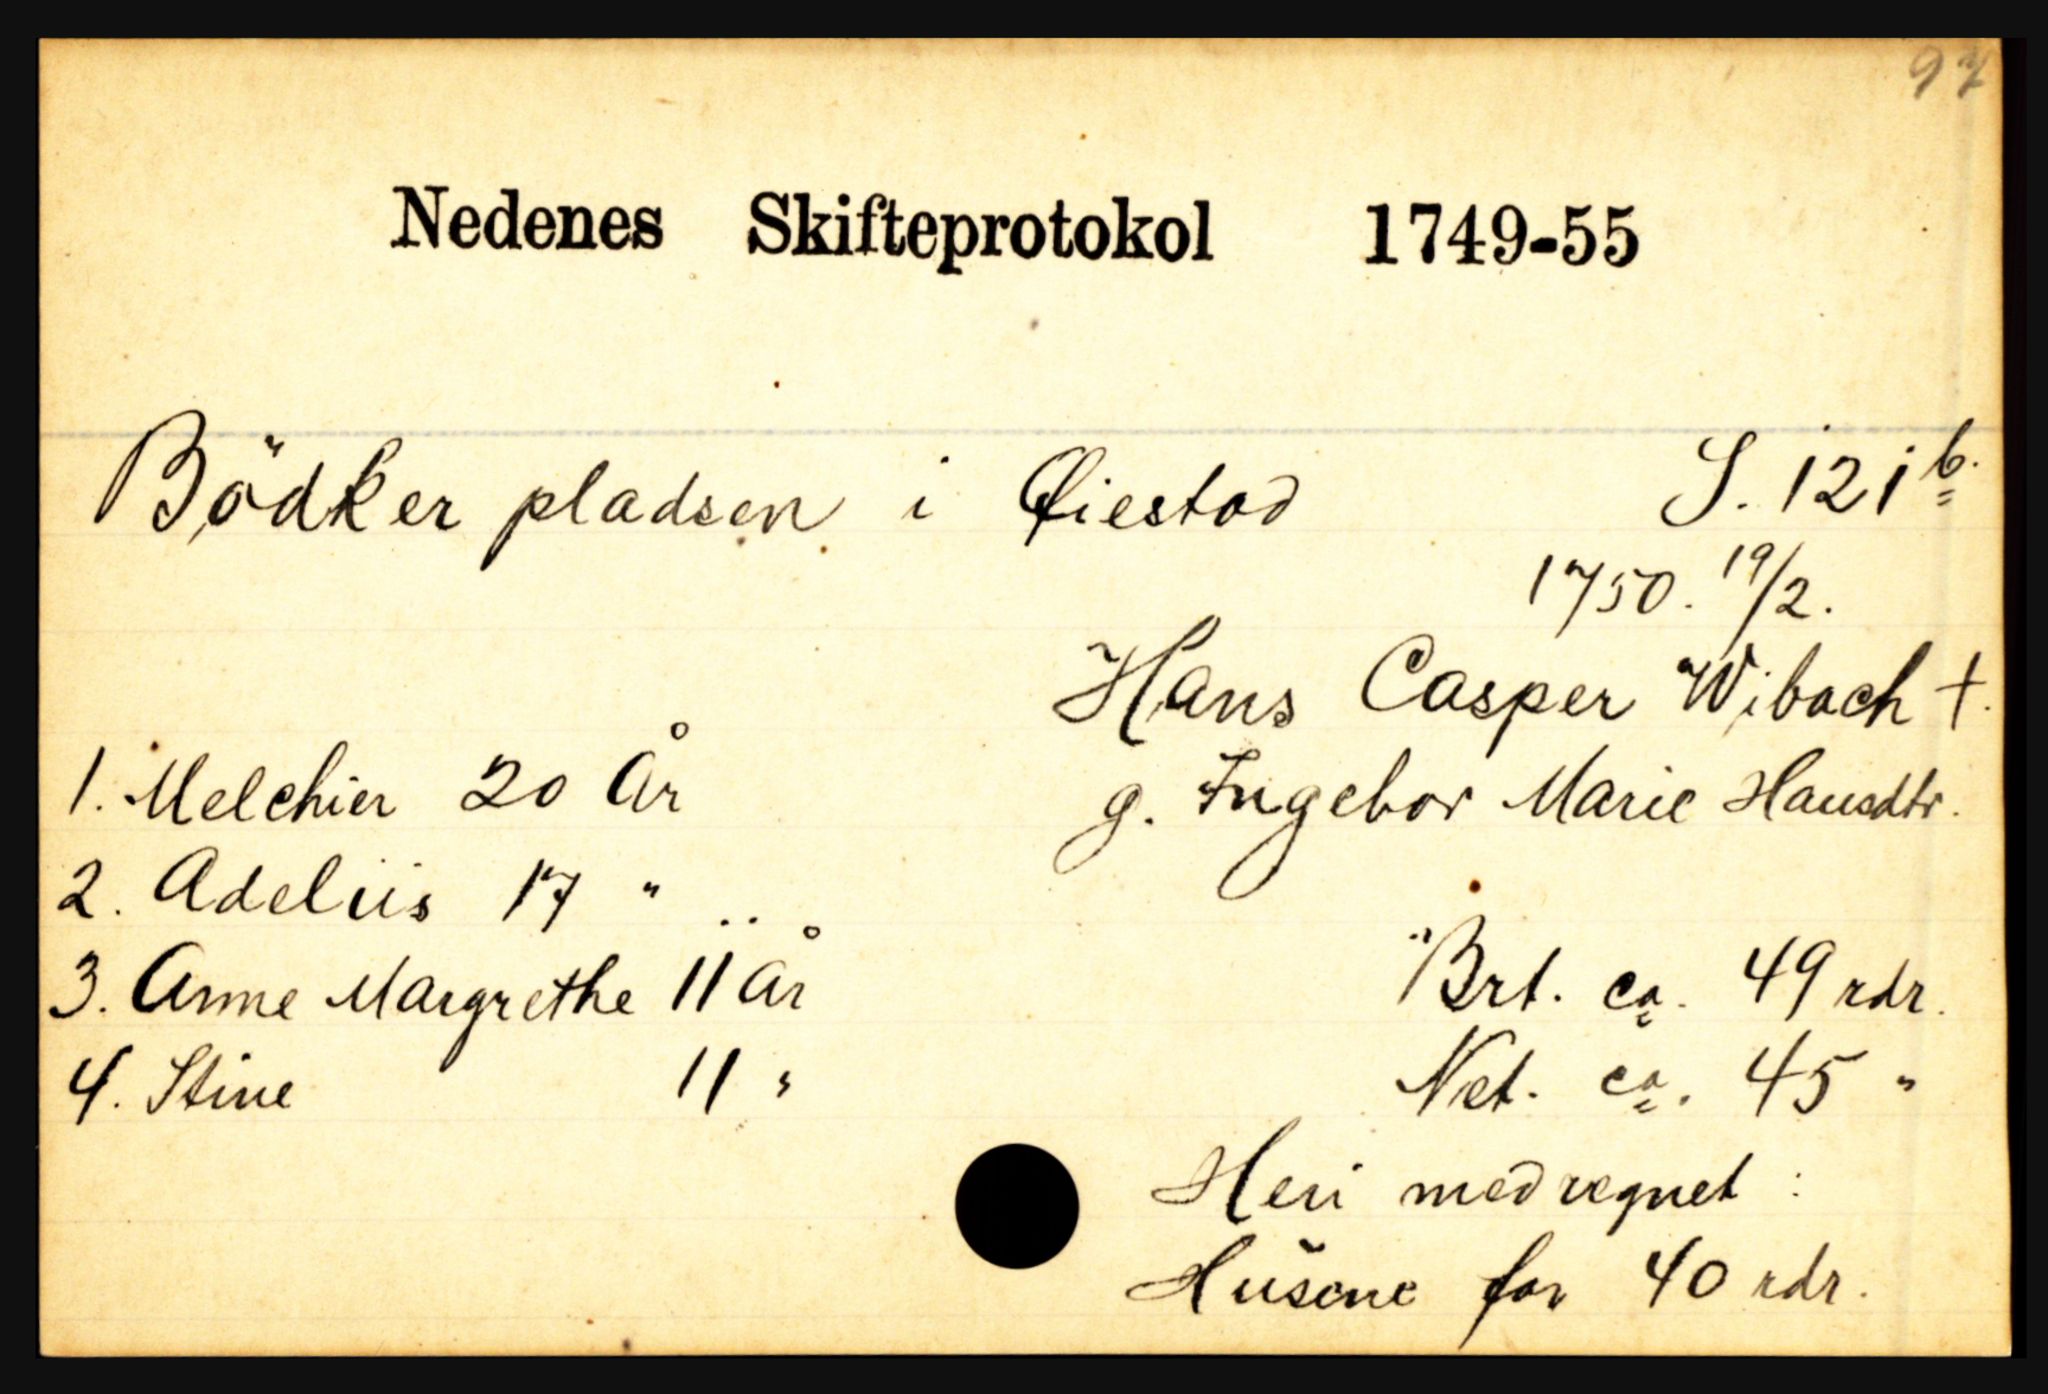 97
Nedenes Skifteprotokol 1749-55
Bödker pladsen i Øiestad S. 121b.
1750. 19/2.
Hans Casper Wibach †.
1. Melchier 20 År
g. Ingebor Marie Hansdtr.
2. Adeliis 17 "
3. Anne Margrethe 11 år
Brt. ca. 49 rdr.
4. Stine 11 "
Net. ca. 45 "
Heri medregnet :
Husene for 40 rdr.